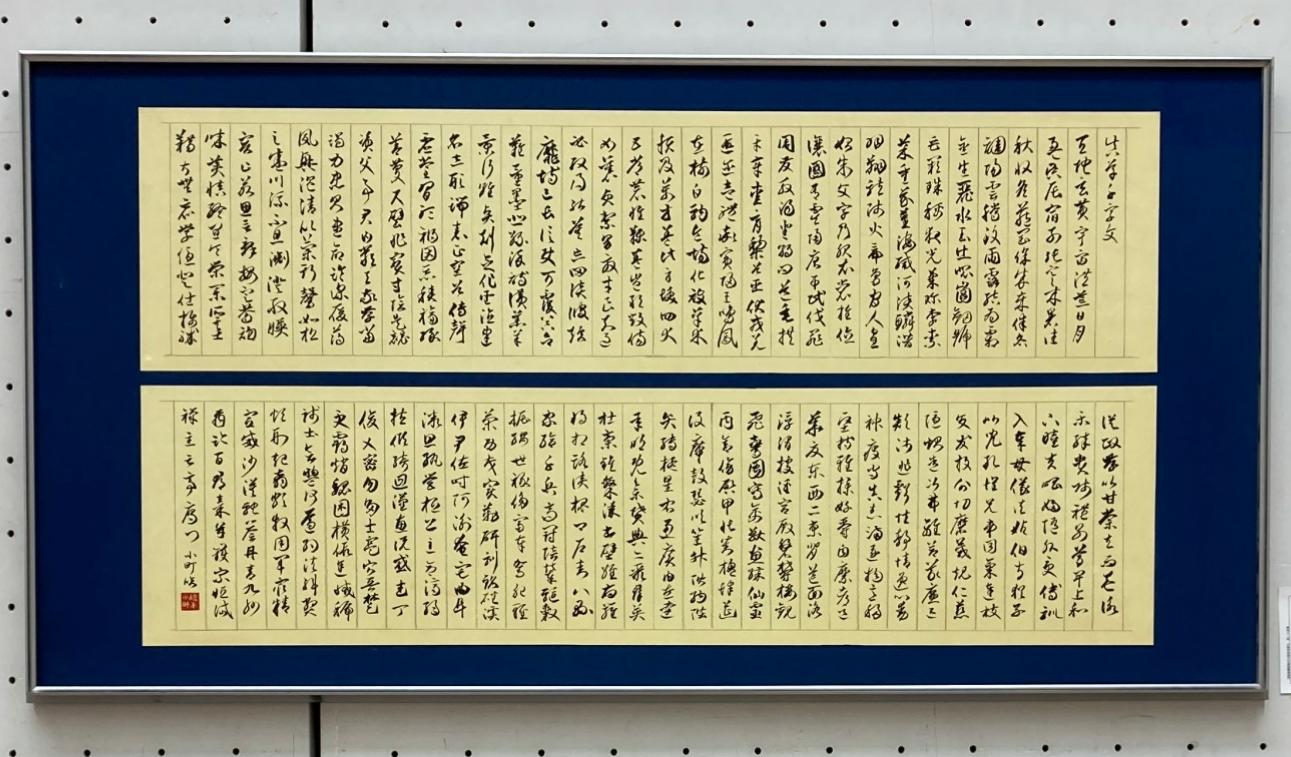 真草千字文
天地玄黄宇宙洪荒日月
盈昃辰宿列張寒来暑往
秋収冬蔵閏余成歳律呂
調陽雲騰致雨露結為霜
金生麗水玉出崑岡剣号
巨闕珠称夜光果珍李柰
菜重芥薑海鹹河淡鱗潜
羽翔龍師火帝鳥官人皇
始制文字乃服衣裳推位
譲国有虞陶唐弔民伐罪
周発殷湯坐朝問道垂拱
平章愛育黎首臣伏戎羌
遐迩壱体率賓帰王鳴鳳
在樹白駒食場化被草木
頼及万方蓋此身髪四大
五常恭惟鞠養豈敢毀傷
女慕貞潔男效才良知過
必改得能莫忘罔談彼短
靡恃己長信使可覆器欲
難量墨悲絲染詩讃羔羊
景行維賢剋念作聖徳建
名立形端表正空谷伝声
虚堂習聴禍因悪積福縁
善慶尺璧非宝寸陰是競
資父事君曰厳与敬孝当
竭力忠則尽命臨深履薄
夙興温凊似蘭斯馨如松
之盛川流不息淵澄取映
容止若思言辞安定篤初
誠美慎終宜令栄業所基
籍甚無竟学優登仕摂職
従政存以甘棠去而益詠
楽殊貴賤礼別尊卑上和
下睦夫唱婦随外受傅訓
入奉母儀諸姑伯叔猶子
比児孔懐兄弟同気連枝
交友投分切磨箴規仁慈
隠惻造次弗離節義廉退
顛沛匪虧性静情逸心動
神疲守真志満逐物意移
堅持雅操好爵自縻都邑
華夏東西二京背芒面洛
浮渭拠涇宮殿盤鬱楼観
飛驚図写禽獣画彩仙霊
丙舎傍啓甲帳対楹肆筵
設席鼓瑟吹笙升階納陛
弁転疑星右通広内左達
承明既集墳典亦聚群英
杜稾鍾隷漆書壁経府羅
将相路侠槐卿戸封八県
家給千兵高冠陪輦駆轂
振纓世禄侈富車駕肥軽
策功茂実勒碑刻銘磻渓
伊尹佐時阿衡奄宅曲阜
微旦孰営桓公匡合済弱
扶傾綺廻漢恵説感武丁
俊乂密勿多士寔寧晋楚
更覇趙魏困横仮途滅虢
践土会盟何遵約法韓弊
煩刑起翦頗牧用軍最精
宣威沙漠馳誉丹青九州
禹跡百郡秦并嶽宗恒岱
禅主云亭雁門 小町